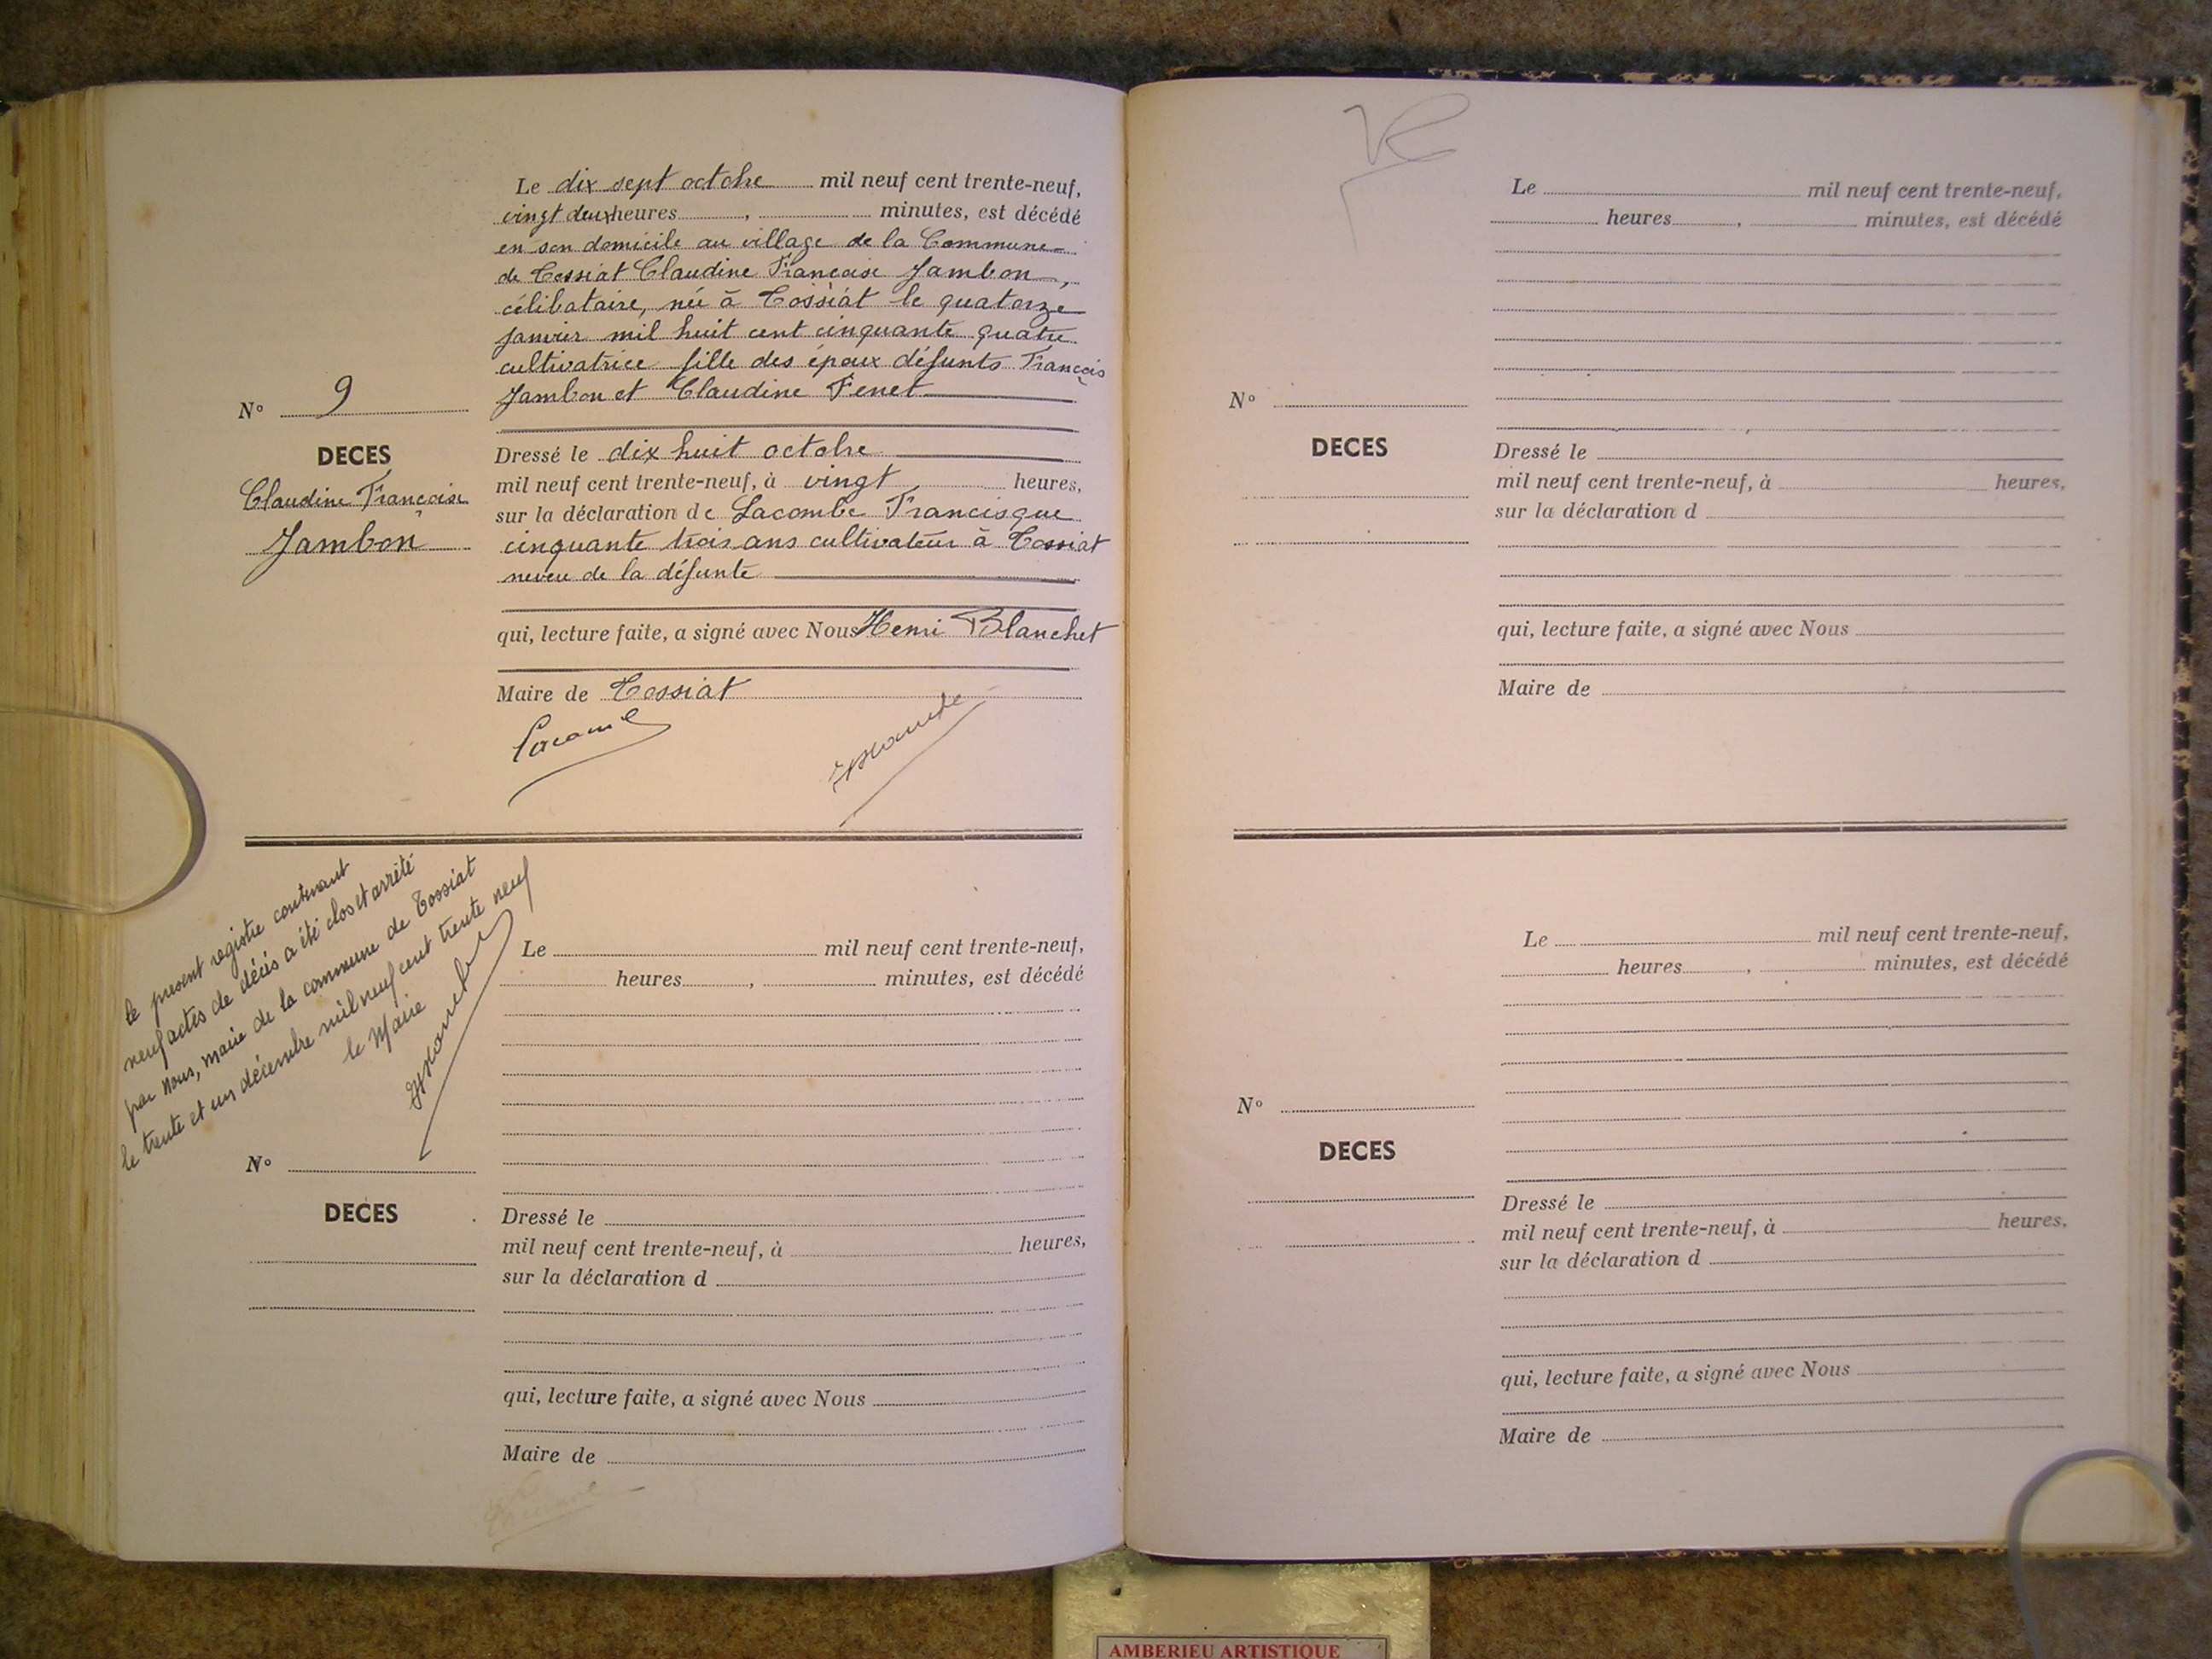 Le dix sept octobre mil neuf cent trente-neuf,
vingt deux heures, minutes, est décédé
en son domicile au village de la Commune
de Tossiat Claudine Françoise Jambon,
célibataire, née à Tossiat le quatorze
janvier mil huit cent cinquante quatre
cultivatrice fille des époux défunts François
Jambon et Claudine Fenet
N° 9
DECES
Claudine Françoise
Jambon
Dressé le dix huit octobre
mil neuf cent trente-neuf, à vingt heures,
sur la déclaration de Lacombe Francisque
cinquante trois ans cultivateur à Tossiat
neveu de la défunte
qui, lecture faite, a signé avec Nous Henri Blanchet
Maire de Tossiat
le présent registre contenant
neuf actes de décès a été clos et arrêté
par nous, maire de la commune de Tossiat
le trente et un décembre mil neuf cent trente neuf
le Maire
Le mil neuf cent trente-neuf,
heures, minutes, est décédé
N°
DECES
Dressé le
mil neuf cent trente-neuf, à heures,
sur la déclaration d
qui, lecture faite, a signé avec Nous
Maire de
Le mil neuf cent trente-neuf,
heures, minutes, est décédé
N°
DECES
Dressé le
mil neuf cent trente-neuf, à heures,
sur la déclaration d
qui, lecture faite, a signé avec Nous
Maire de
Le mil neuf cent trente-neuf,
heures, minutes, est décédé
N°
DECES
Dressé le
mil neuf cent trente-neuf, à heures,
sur la déclaration d
qui, lecture faite, a signé avec Nous
Maire de
AMBERIEU ARTISTIQUE